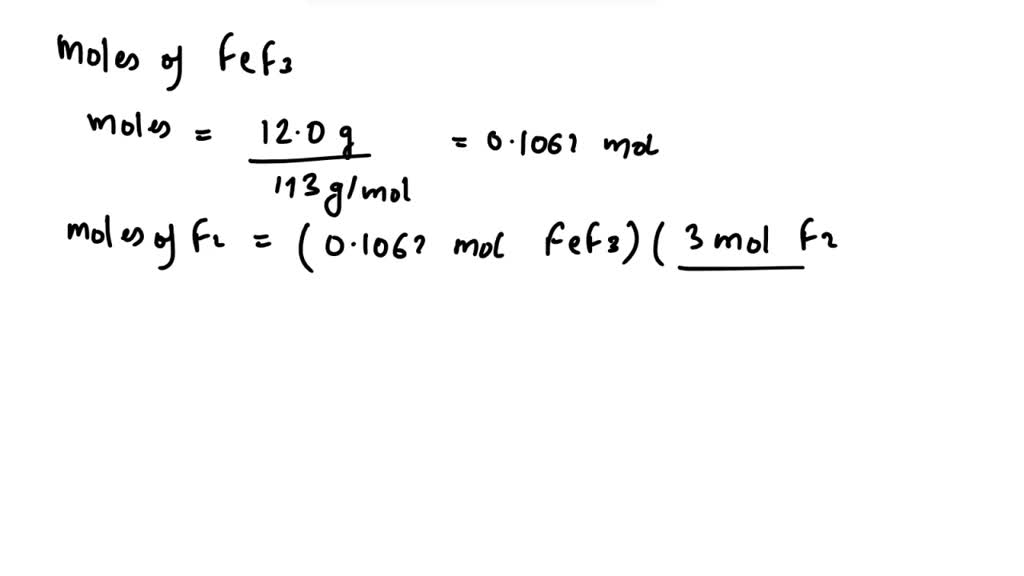 moles of FeF3
moles = 12.0 g / 113 g/mol = 0.1062 mol
moles of F2 = (0.1062 mol FeF3) ( 3 mol F2